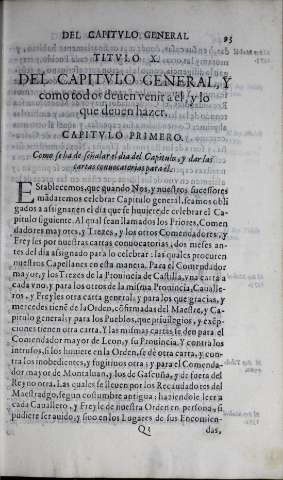 DEL CAPITVLO GENERAL 93
TITVLO X.
DEL CAPITVLO GENERAL, Y
como todos deuen venir a el, y lo
que deuen hazer.
CAPITVLO PRIMERO.
Como se ha de señalar el dia del Capitulo, y dar las
cartas conuocatorias para el.
EStablecemos, que quando Nos, y nuestros sucessores
mãdaremos celebrar Capitulo general, seamos obli
gados a assignar en el dia que se huuiere de celebrar el Ca-
pitulo siguiente. Al qual seã llamados los Priores, Comen
dadores mayores, y Trezes, y los otros Comendadores, y
Freyles por nuestras cartas conuocatorias, dos meses an-
tes del dia assignado para lo celebrar: las quales procuren
nuestros Capellanes en esta manera. Para el Comendador
mayor, y los Trezes de la Prouincia de Castilla, vna carta a
cada vno, y para los otros de la misma Prouincia, Caualle-
ros, y Freyles otra carta general; y para los que gracias, y
mercedes tienẽ de la Orden, cõfirmadas del Maestre, y Ca-
pitulo general; y para los Pueblos, que priuilegios, y exẽp-
ciones tienen otra carta. Y las mismas cartas se den para el
Comendador mayor de Leon, y su Prouincia. Y contra los
intrusos, si los huuiere en la Orden, se dè otra carta, y con-
tra los inobedientes, y fugitiuos otra; y para el Comenda-
dor mayor de Montaluan, y los de Gascuña, y de fuera del
Reyno otra. Las quales se lleuen por los Recaudadores del
Maestradgo, segun costumbre antigua: haziendole leer a
cada Cauallero, y Freyle de nuestra Orden en persona, si
pudiere ser auido, y sino en los Lugares de sus Encomien-
Q3 das,